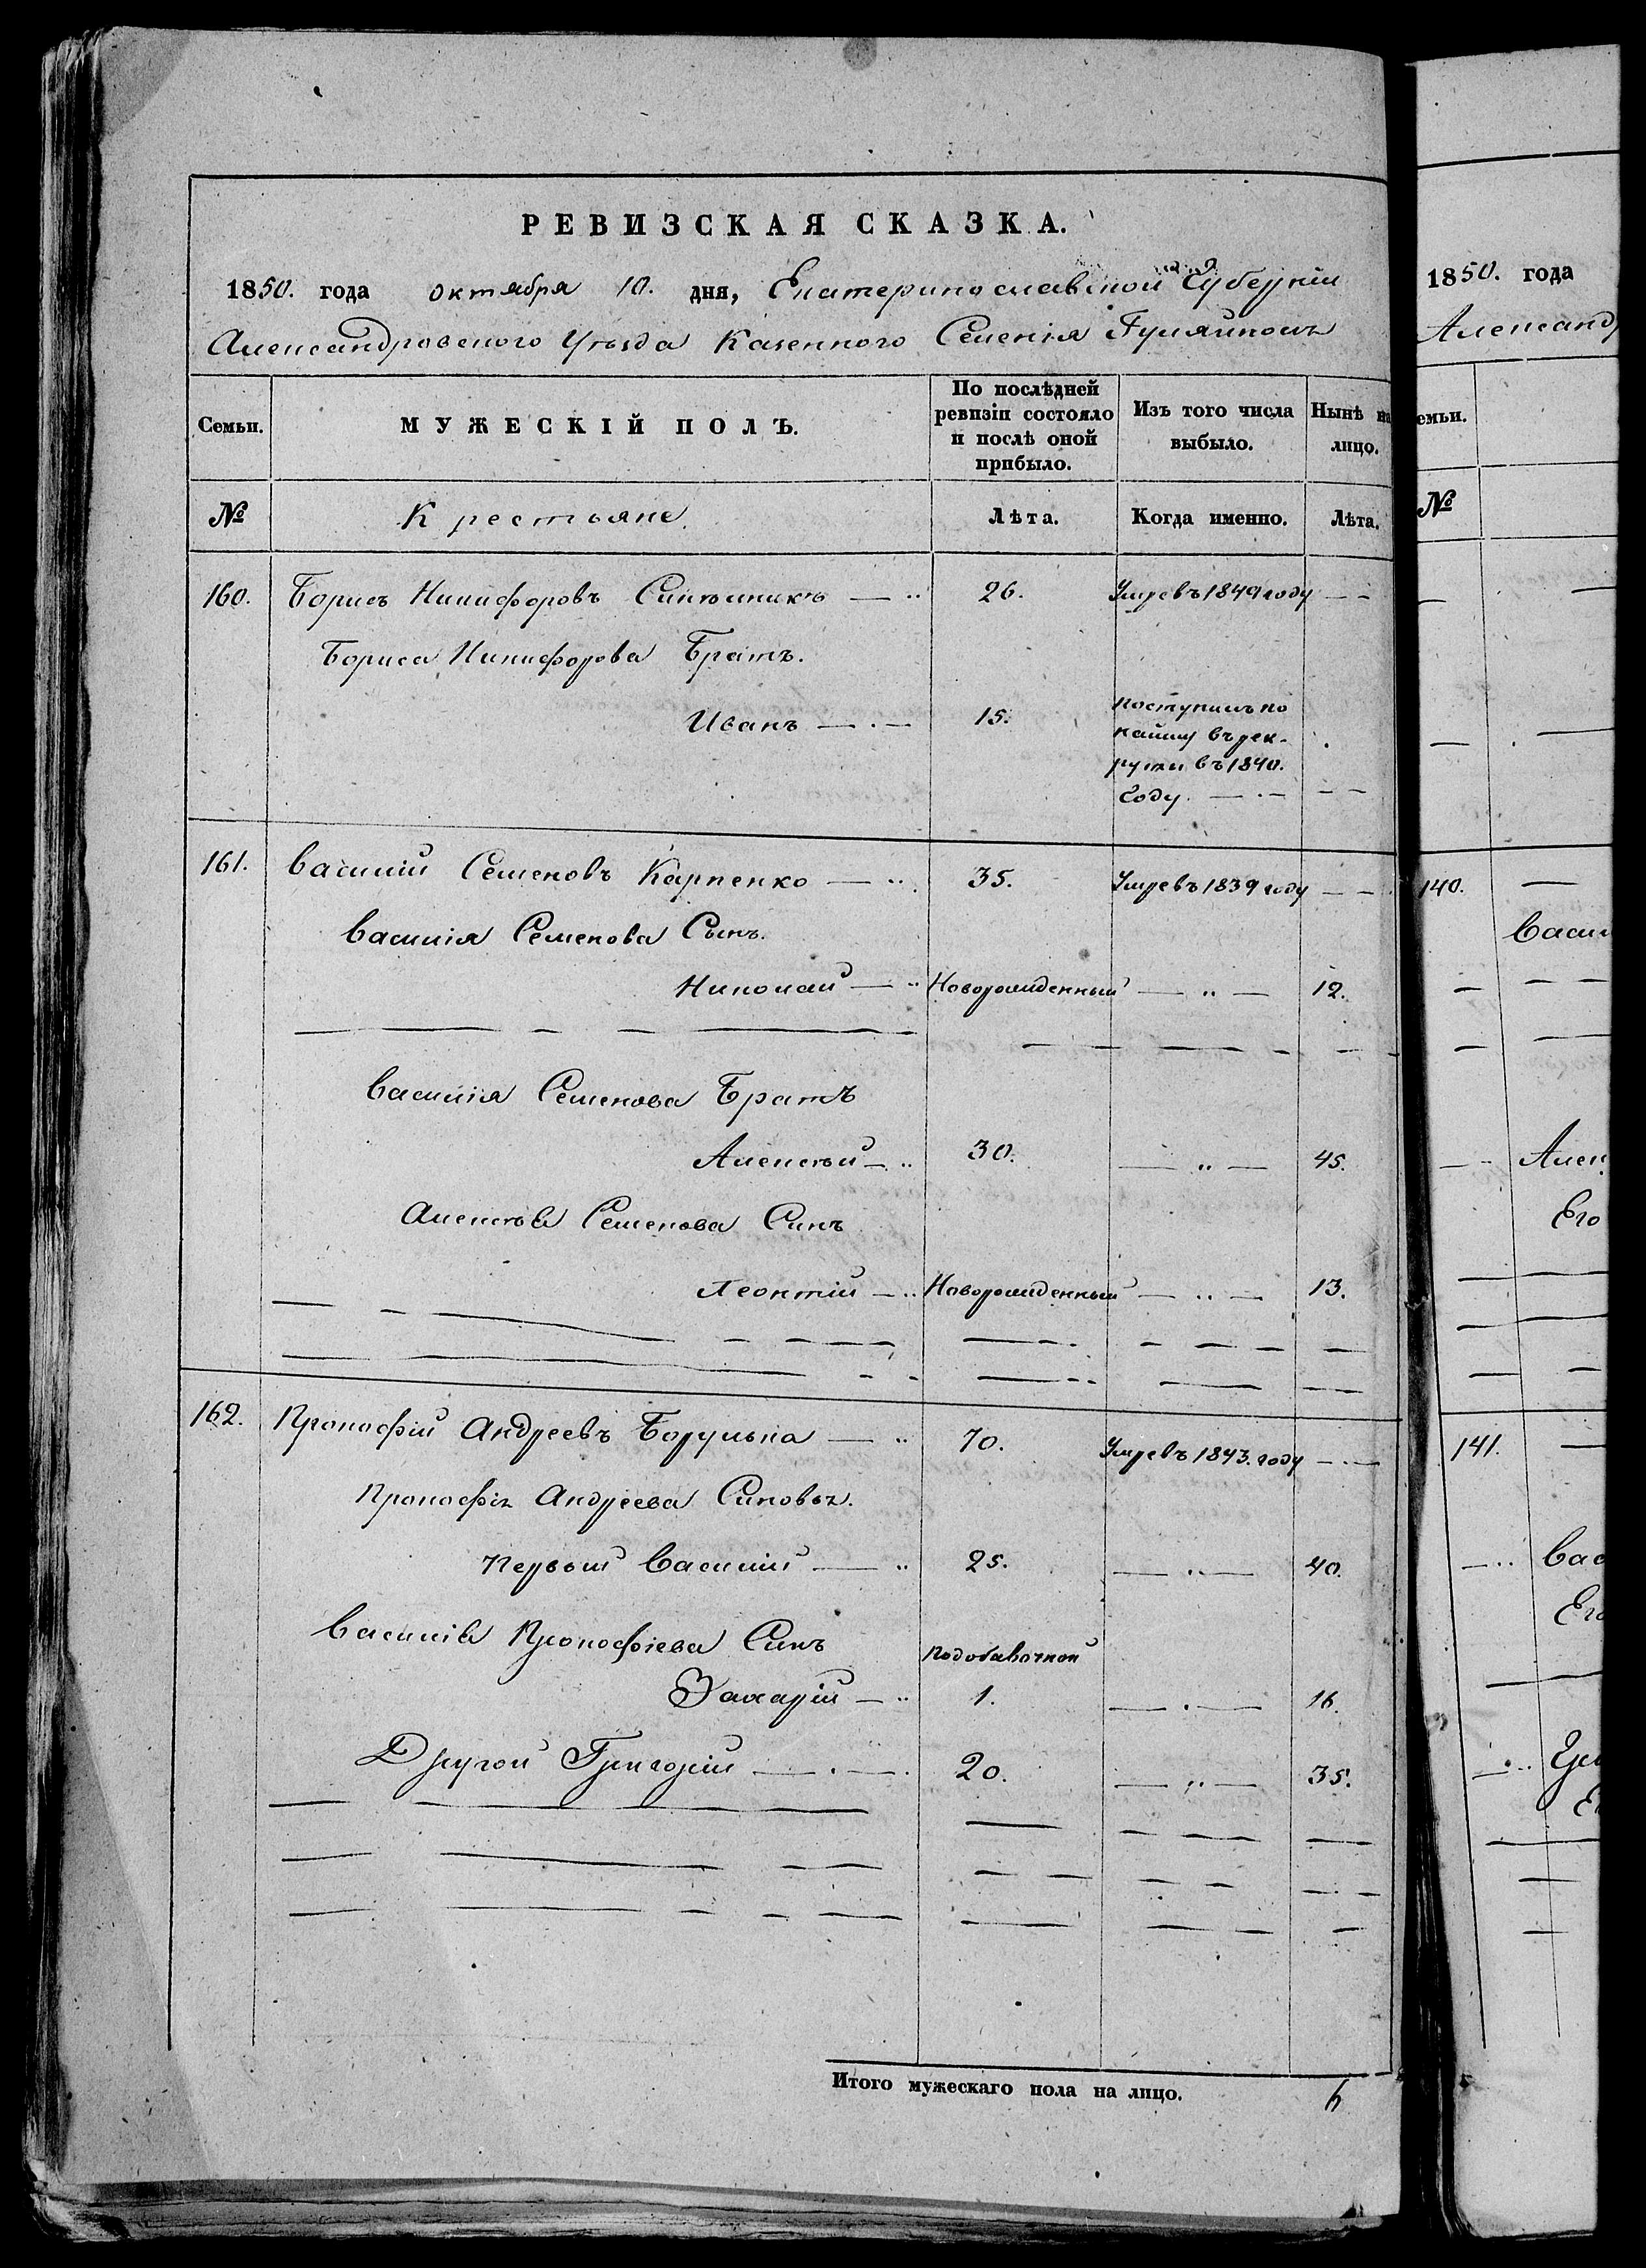 РЕВИЗСКАЯ СКАЗКА.
1850. года октября 10. дня, Екатеринославской Губерніи
Александровского Уезда Казенного Селенія Гуляйполь
Семьи. МУЖЕСКІЙ ПОЛЪ. По послѣдней ревизіи состояло и послѣ оной прибыло. Изъ того числа выбыло. Нынѣ на лицо.
№ Крестьяне. Лѣта. Когда именно. Лѣта.
160. Борисъ Никифоровъ — 26. Умре въ 1849 году — —
Бориса Никифорова Братъ.
Иванъ — 15. поступилъ по
найму въ рек-
руты въ 1840.
Году. — — —
161. Василий Семеновъ Карпенко — 35. Умре въ 1839 году — —
Василія Семенова Сынъ.
Николай — Новорожденный — " — 12.
Василія Семенова Братъ
Алексѣй — 30. — " — 45.
Алексѣя Семенова Синъ
Леонтій — Новорожденный — " — 13.
162. Прокофій Андреевъ Борулька — 70. Умре въ 1843. году — —
Прокофія Андреева Синовья.
Первый Василій — 25. — " — 40.
Василія Прокофіева Синъ подобавочной
Захарій — 1. — " — 16.
Другой Григорій — 20. — " — 35.
Итого мужескаго пола на лицо. 6
1850. года
Александ
емьи.
№
140. —
Васи
Алек
Его
141. —
Вас
Его
Гри
Е